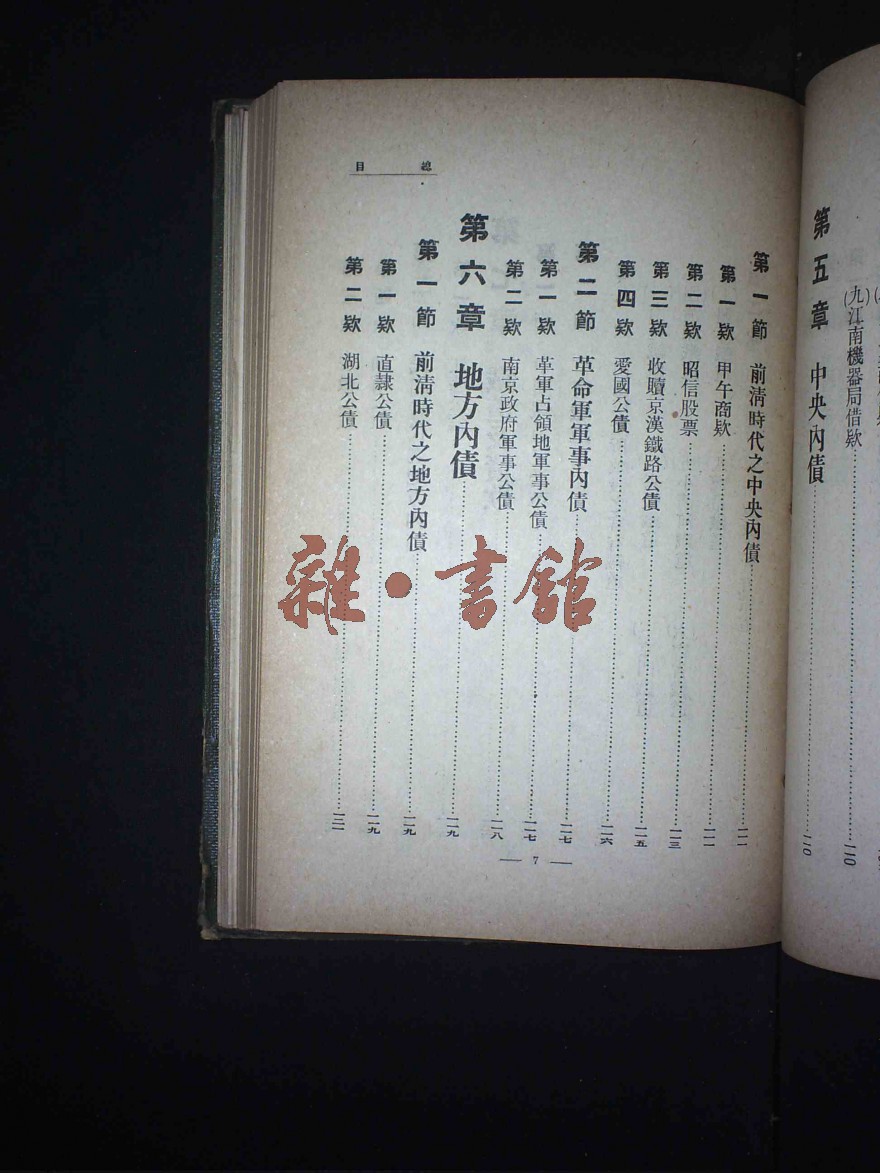 (九江南機器局借欵 一一〇
第五章 中央內債 一一〇
總目
第一節 前清時代之中央內債 一一一
第一欵 甲午商欵
第二欵 昭信股票 一一一
第三欵 收贖京漢鐵路公債 一一三
第四欵 愛國公債 一一五
一一六
第二節 革命軍軍事內債 一一七
第一欵 革軍占領地軍事公債 一一七
第二欵 南京政府軍事公債 一一八
第六章 地方內債 一一九
第一節 前清時代之地方內債 一一九
第一欵 直隷公債 一一九
第二欵 湖北公債 一二一
— 7 —
雜·書館